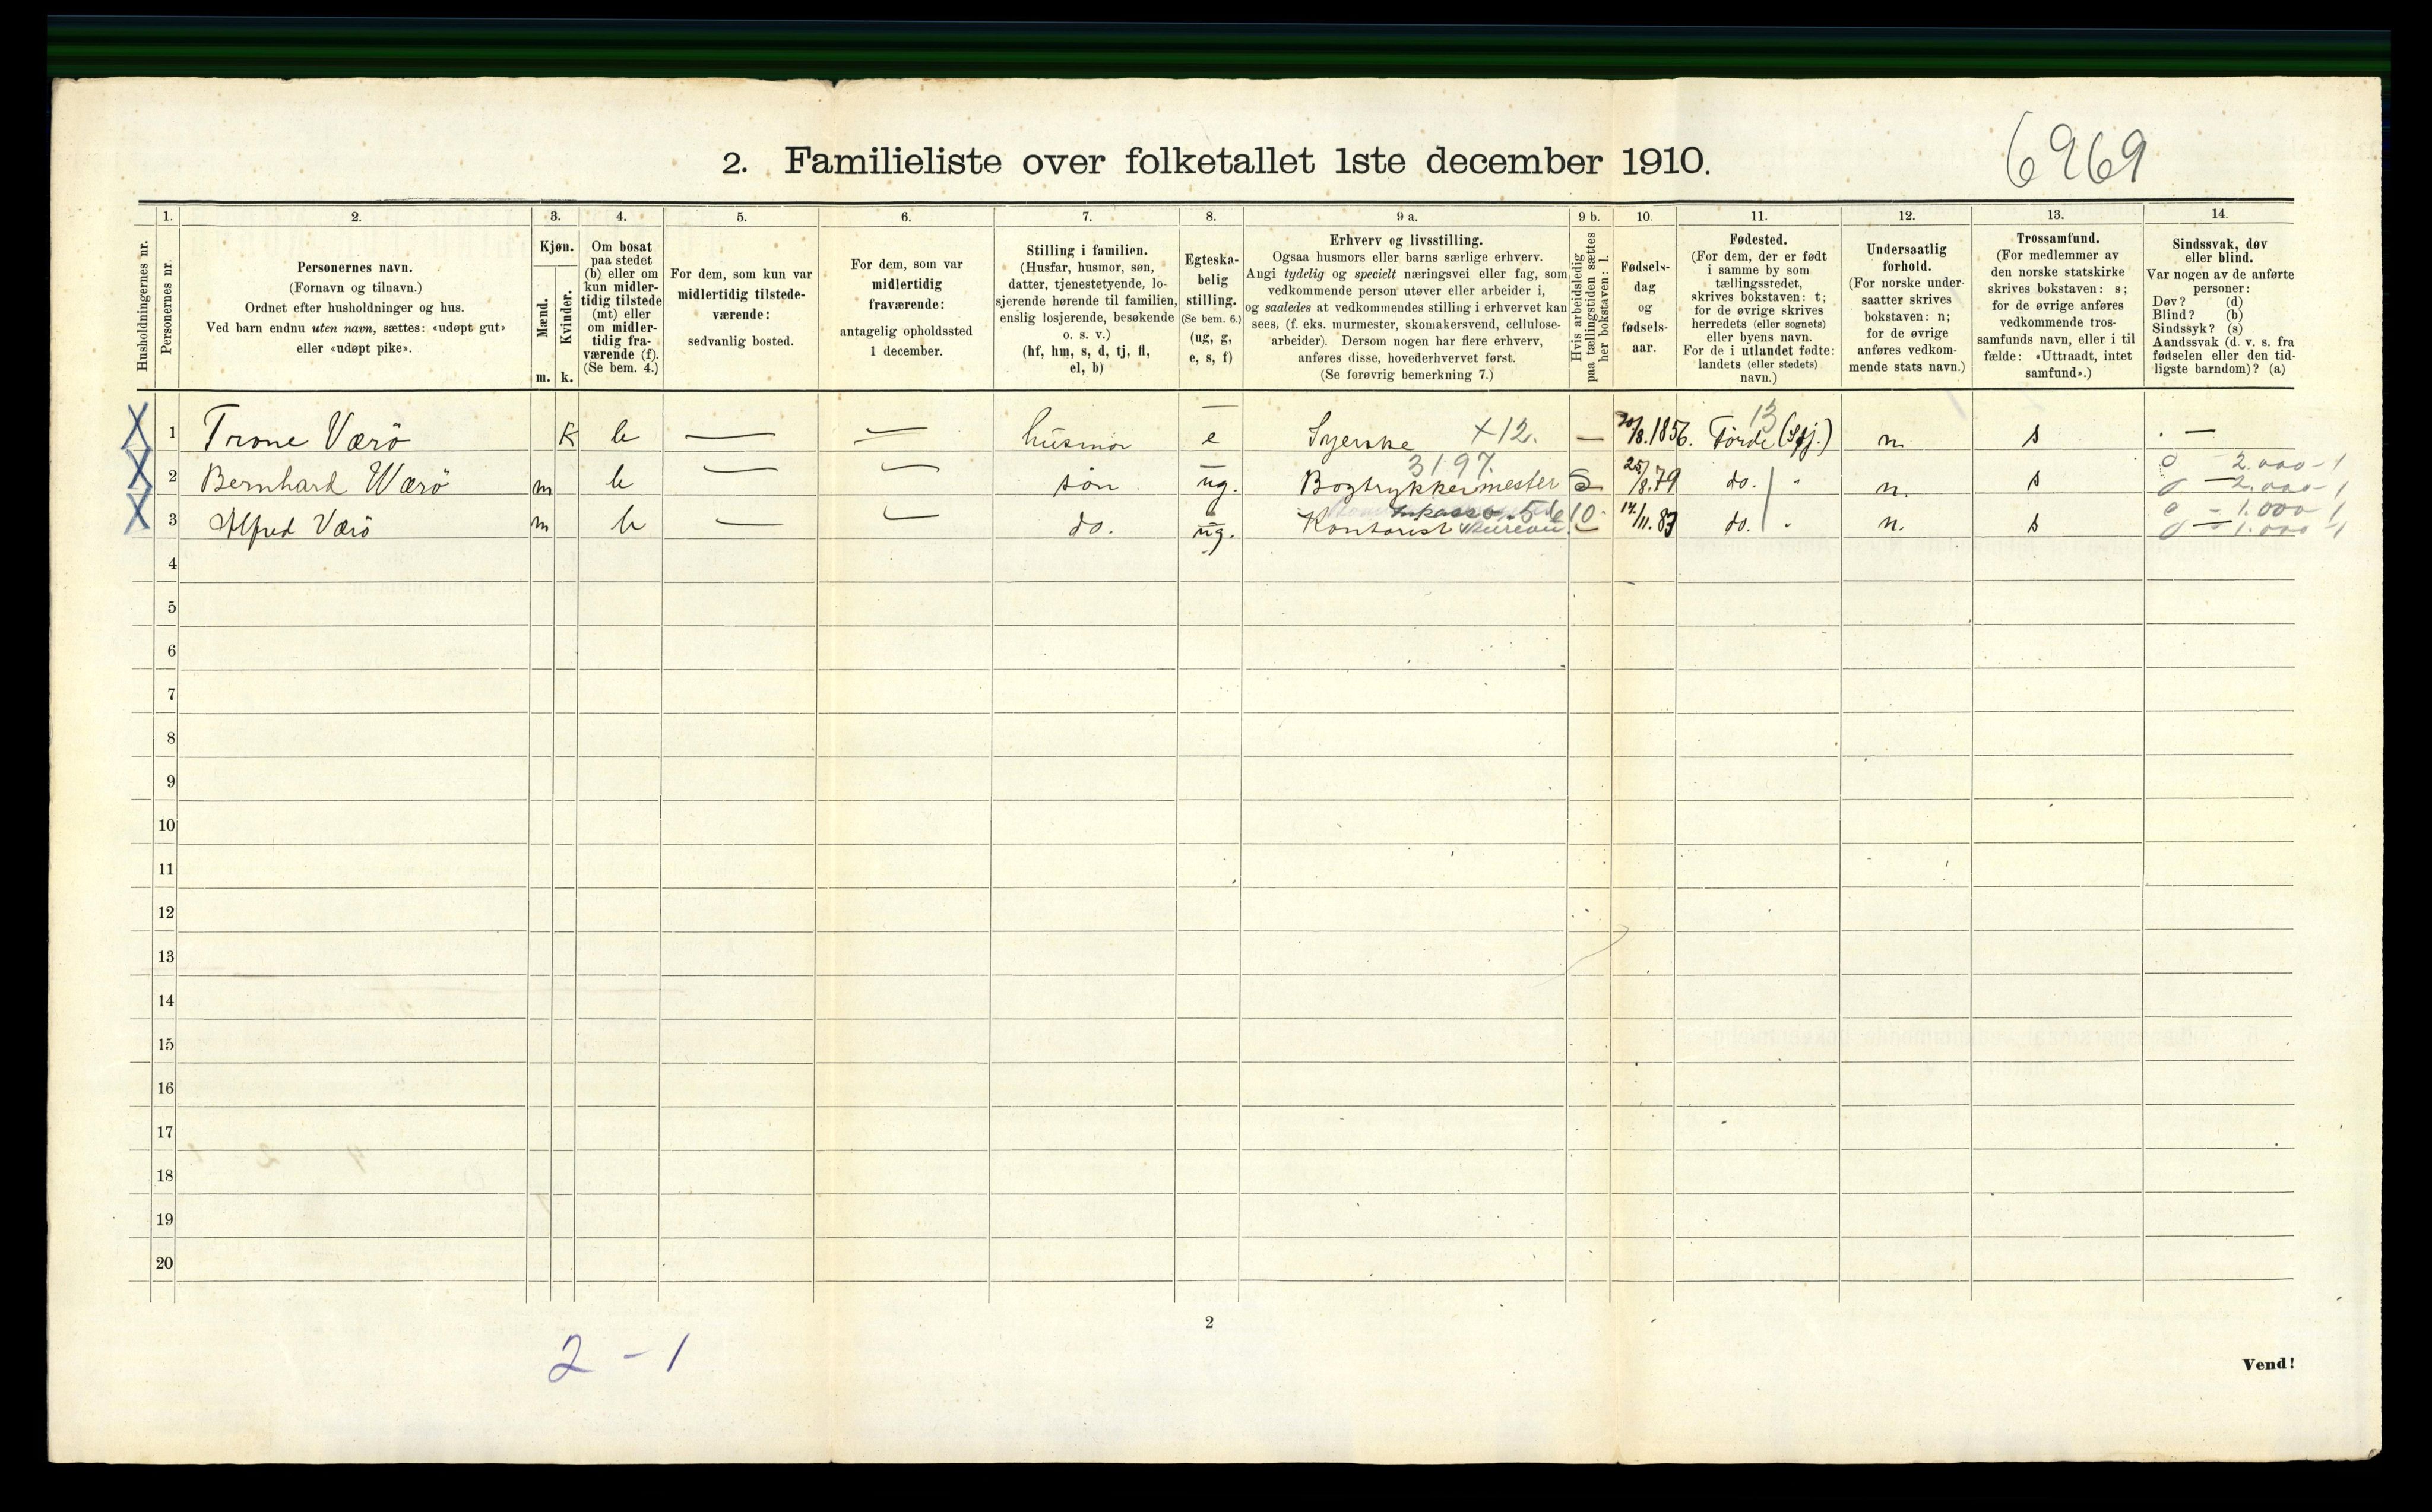 6969
2. Familieliste over folketallet 1ste december 1910.
1. 2. 3. 4. 5. 6. 7. 8. 9 a. 9 b. 10. 11. 12. 13. 14.
Husholdningernes nr.
Personernes nr.
Personernes navn.
(Fornavn og tilnavn.)
Ordnet efter husholdninger og hus.
Ved barn endnu uten navn, sættes: «udøpt gut»
eller «udøpt pike».
Kjøn.
Mænd.
Kvinder.
m. k.
Om bosat
paa stedet
(b) eller om
kun midler-
tidig tilstede
(mt) eller
om midler-
tidig fra-
værende (f).
(Se bem. 4.)
For dem, som kun var
midlertidig tilstede-
værende:
sedvanlig bosted.
For dem, som var
midlertidig
fraværende:
antagelig opholdssted
1 december.
Stilling i familien.
(Husfar, husmor, søn,
datter, tjenestetyende, lo-
sjerende hørende til familien,
enslig losjerende, besøkende
o. s. v.)
(hf, hm, s, d, tj, fl,
el, b)
Egteska-
belig
stilling.
(Se bem. 6.)
(ug, g,
e, s, f)
Erhverv og livsstilling.
Ogsaa husmors eller barns særlige erhverv.
Angi tydelig og specielt næringsvei eller fag, som
vedkommende person utøver eller arbeider i,
og saaledes at vedkommendes stilling i erhvervet kan
sees, (f. eks. murmester, skomakersvend, cellulose-
arbeider). Dersom nogen har flere erhverv,
anføres disse, hovederhvervet først.
(Se forøvrig bemerkning 7.)
Hvis arbeidsledig
paa tællingstiden sættes
her bokstaven: l.
Fødsels-
dag
og
fødsels-
aar.
Fødested.
(For dem, der er født
i samme by som
tællingsstedet,
skrives bokstaven: t;
for de øvrige skrives
herredets (eller sognets)
eller byens navn.
For de i utlandet fødte:
landets (eller stedets)
navn.)
Undersaatlig
forhold.
(For norske under-
saatter skrives
bokstaven: n;
for de øvrige
anføres vedkom-
mende stats navn.)
Trossamfund.
(For medlemmer av
den norske statskirke
skrives bokstaven: s;
for de øvrige anføres
vedkommende tros-
samfunds navn, eller i til
fælde: «Uttraadt, intet
samfund».)
Sindssvak, døv
eller blind.
Var nogen av de anførte
personer:
Døv? (d)
Blind? (b)
Sindssyk? (s)
Aandssvak (d. v. s. fra
fødselen eller den tid-
ligste barndom)? (a)
X 1 Trone Værö K b — — husmor e Syerske X12. — 20/8.1856. 13 Förde (Sfj.) n. s —
3197.
X 2 Bernhard Wærö m b — — sön ug. Bogtrykkermester 25/8.79 do. " n. s 0 - 2.000-1
0 - 2.000-1
X 3 Alfred Værö m b — — do. ug. Kontorist Bureau 14/11.83 do. " n. s 0 - 1.000-1
0 - 1.000-1
4
5
6
7
8
9
10
11
12
13
14
15
16
17
18
19
20
2
2 - 1
Vend!